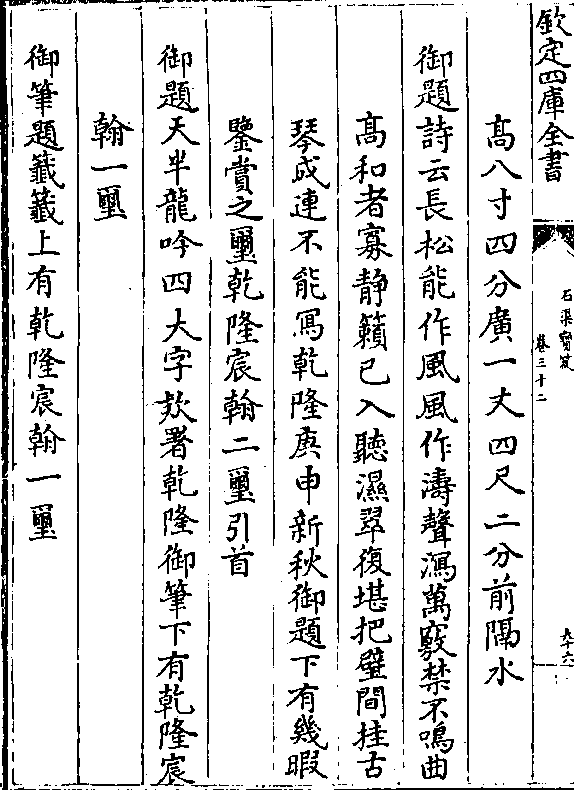 欽定四庫全書
石渠寶笈
卷三十二
九十六
高八寸四分廣一丈四尺二分前隔水
御題詩云長松能作風風作濤聲瀉萬竅禁不鳴曲
高和者寡静籟已入聽濕翠復堪把壁間挂古
琴成連不能寫乾隆庚申新秋御題下有幾暇
鑒賞之璽乾隆宸翰二璽引首
御題天半龍吟四大字欵署乾隆御筆下有乾隆宸
翰一璽
御筆題籤籤上有乾隆宸翰一璽